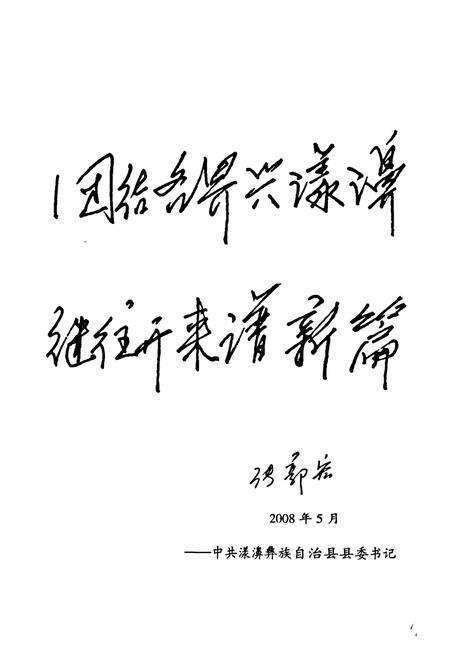 团结各界兴漾濞
继往开来谱新篇
2008年5月
——中共漾濞彝族自治县县委书记